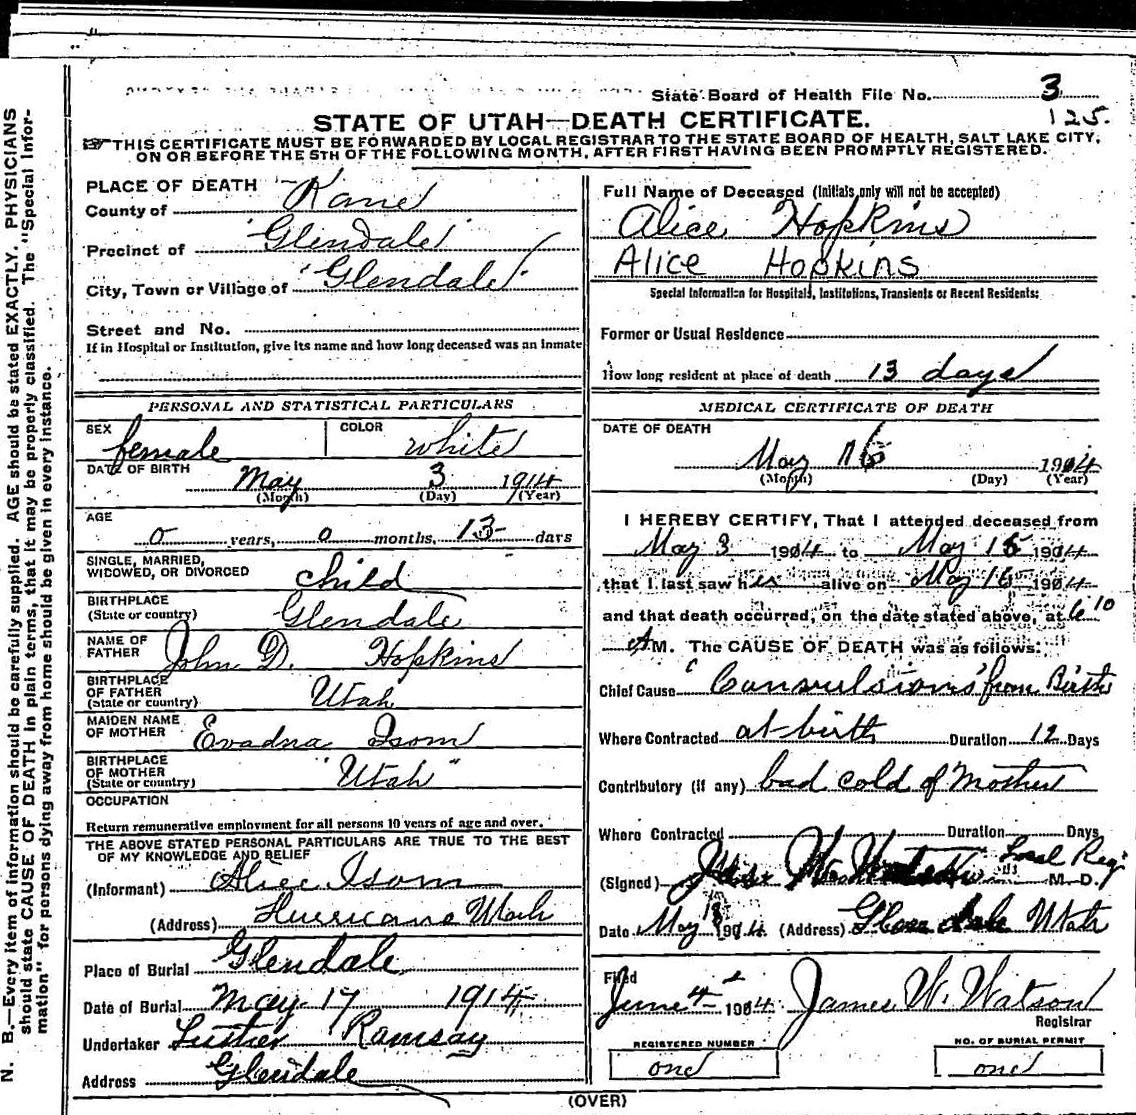 State Board of Health File No. 3
125.
STATE OF UTAH—DEATH CERTIFICATE.
THIS CERTIFICATE MUST BE FORWARDED BY LOCAL REGISTRAR TO THE STATE BOARD OF HEALTH, SALT LAKE CITY,
ON OR BEFORE THE 5TH OF THE FOLLOWING MONTH, AFTER FIRST HAVING BEEN PROMPTLY REGISTERED.
N. B.—Every item of information should be carefully supplied. AGE should be stated EXACTLY. PHYSICIANS
should state CAUSE OF DEATH in plain terms, that it may be properly classified. The "Special Infor-
mation" for persons dying away from home should be given in every instance.
PLACE OF DEATH
County of Kane
Precinct of Glendale
City, Town or Village of Glendale
Street and No.
If in Hospital or Institution, give its name and how long deceased was an inmate
PERSONAL AND STATISTICAL PARTICULARS
SEX female COLOR white
DATE OF BIRTH May 3 1914
(Month) (Day) (Year)
AGE 0 years, 0 months, 13 days
SINGLE, MARRIED,
WIDOWED, OR DIVORCED child
BIRTHPLACE
(State or country) Glendale
NAME OF
FATHER John D. Hopkins
BIRTHPLACE
OF FATHER
(State or country) Utah
MAIDEN NAME
OF MOTHER Evadna Isom
BIRTHPLACE
OF MOTHER
(State or country) "Utah"
OCCUPATION
Return remunerative employment for all persons 10 years of age and over.
THE ABOVE STATED PERSONAL PARTICULARS ARE TRUE TO THE BEST
OF MY KNOWLEDGE AND BELIEF
(Informant) Alice Isom
(Address) Hurricane Utah
Place of Burial Glendale
Date of Burial May 17 1914
Undertaker Ramsay
Address Glendale
Full Name of Deceased (Initials only will not be accepted)
Alice Hopkins
Alice Hopkins
Special Information for Hospitals, Institutions, Transients or Recent Residents:
Former or Usual Residence
How long resident at place of death 13 days
MEDICAL CERTIFICATE OF DEATH
DATE OF DEATH
May 16 1914
(Month) (Day) (Year)
I HEREBY CERTIFY, That I attended deceased from
May 3 1904 to May 15 1904
that I last saw h is alive on May 16 1904
and that death occurred, on the date stated above, at 6 10
A M. The CAUSE OF DEATH was as follows:
Chief Cause "Convulsions" from Birth
Where Contracted at birth Duration 12 Days
Contributory (if any) bad cold of Mother
Where Contracted Duration Days
(Signed) W. Local Reg M. D.
Date May 18 1914 (Address) Glendale Utah
Filed
June 4 1904 James W. Watson
Registrar
REGISTERED NUMBER
one
NO. OF BURIAL PERMIT
one
(OVER)